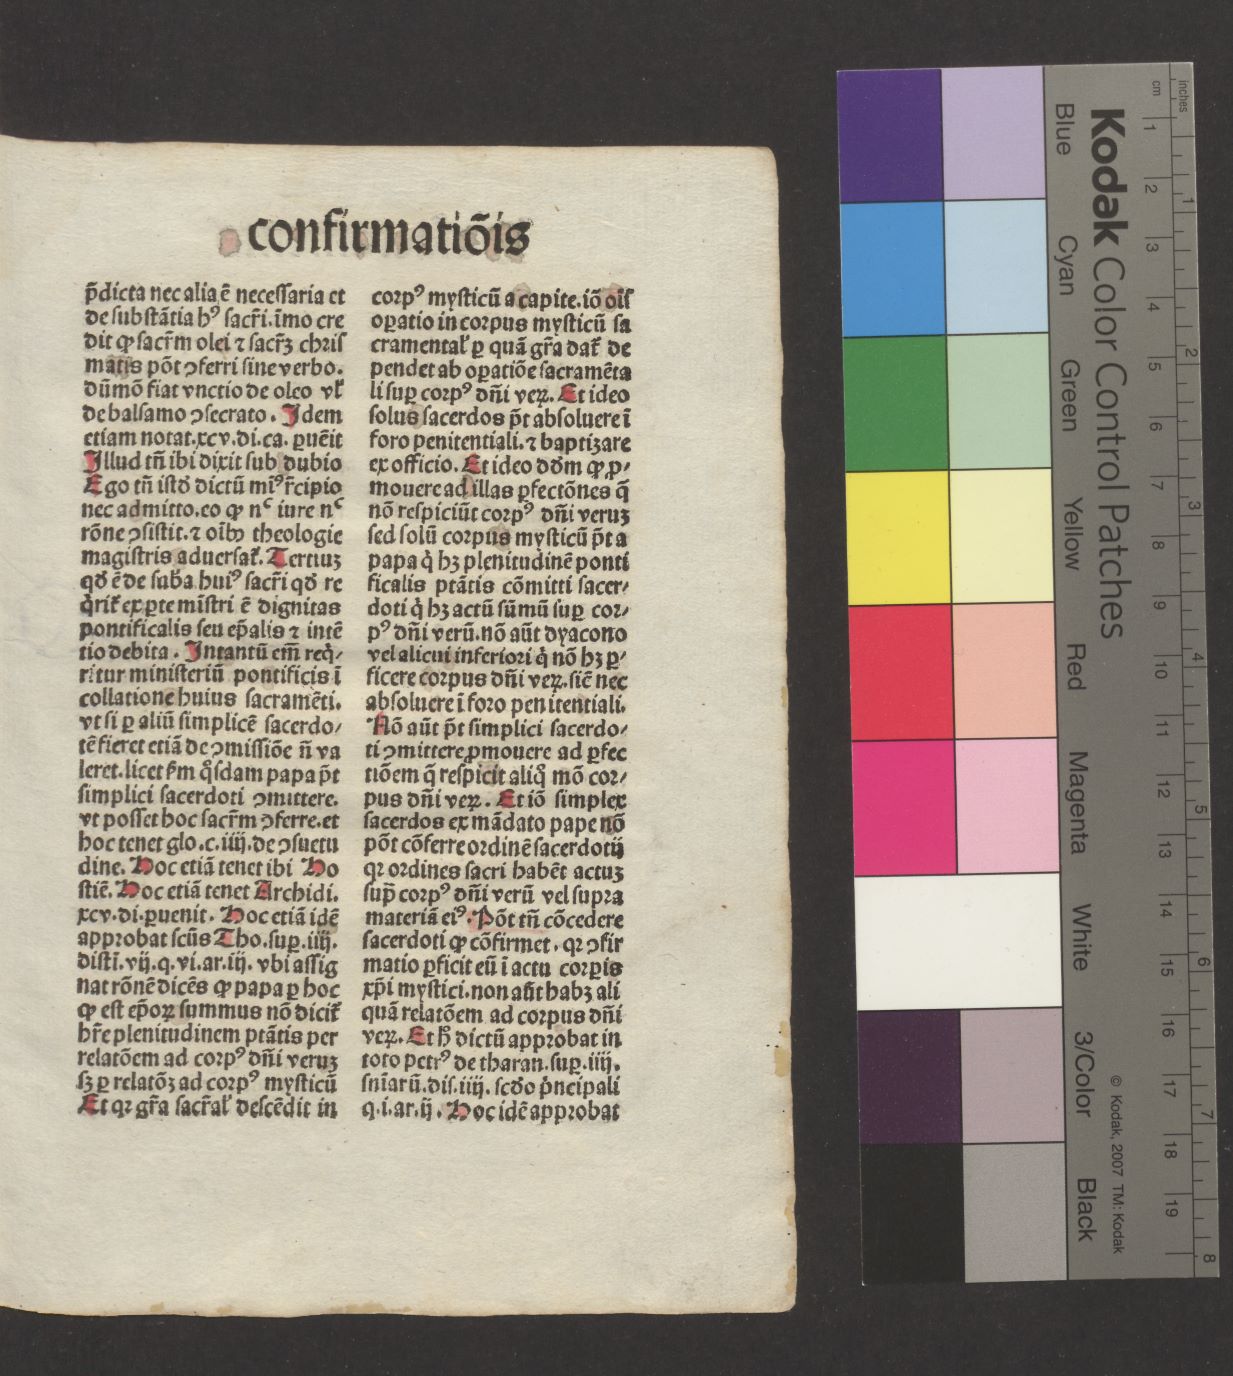 confirmatiõis
p̃dicta nec alia ẽ necessaria et
de substãtia hꝰ sacr̃i. ĩmo cre
dit ꝙ sacr̃m olei ⁊ sacr̃ꝫ chris
matis põt ↄferri sine verbo.
dũmõ fiat vnctio de oleo vl̃
de balsamo ↄsecrato. Idem
etiam notat. xcv. di. ca. ꝑuẽit
Illud tñ ibi dixit sub dubio
Ego tñ istđ dictũ miꝰ r̃cipio
nec admitto. eo ꝙ nͨ iure nͨ
rõne ↄsistit. ⁊ oĩbꝰ theologie
magistris aduersat̃. Tertiuꝫ
qđ ẽ de suba huiꝰ sacr̃i qđ re
q̇rit̃ ex ꝑte mĩstri ẽ dignitas
pontificalis seu ep̃alis ⁊ intẽ
tio debita. Intantũ em̃ req̇⸗
ritur ministeriũ pontificis ĩ
collatione huius sacramẽti.
vt si ꝑ aliũ simplicẽ sacerdo⸗
tẽ fieret etiã de ↄmissiõe ñ va
leret. licet ẜm q̊sdam papa p̃t
simplici sacerdoti ↄmittere.
vt posset hoc sacr̃m ↄferre. et
hoc tenet glo. c. iiij. de ↄsuetu
dine. Hoc etiã tenet ibi Ho
stiẽ. Hoc etiã tenet Archidi.
xcv. di. ꝑuenit. Hoc etiã idẽ
approbat scũs Tho. suꝑ. iiij.
distĩ. vij. q. vi. ar. iij. vbi assig
nat rõnẽ dicẽs ꝙ papa ꝑ hoc
ꝙ est ep̃oꝝ summus nõ dicit̃
hr̃e plenitudinem ptãtis per
relatõem ad corpꝰ dñi veruꝫ
sꝫ ꝑ relatõꝫ ad corpꝰ mysticũ
Et qꝛ gr̃a sacr̃al̃ descẽdit in
corpꝰ mysticũ a capite. iõ oĩs
oꝑatio in corpus mysticũ sa
cramental̃ ꝑ quã gr̃a dat̃ de
pendet ab oꝑatiõe sacramẽta
li suꝑ corpꝰ dñi veꝝ. Et ideo
solus sacerdos p̃t absoluere ĩ
foro penitentiali. ⁊ baptizare
ex officio. Et ideo dđm ꝙ ꝓ⸗
mouere ad illas ꝑfectõnes q̃
nõ respiciũt corpꝰ dñi veruꝫ
sed solũ corpus mysticũ p̃t a
papa q̇ hꝫ plenitudinẽ ponti
ficalis ptãtis cõmitti sacer⸗
doti q̇ hꝫ actũ sũmũ suꝑ cor⸗
pꝰ dñi verũ. nõ aũt dyacono
vel alicui inferiori q̇ nõ hꝫ ꝑ⸗
ficere corpus dñi veꝝ. siẽ nec
absoluere ĩ foro penitentiali.
Nõ aũt p̃t simplici sacerdo⸗
ti ↄmittere ꝓmouere ad ꝑfec
tiõem q̃ respicit aliq̊ mõ cor⸗
pus dñi veꝝ. Et iõ simplex
sacerdos ex mãdato pape nõ
põt cõferre ordinẽ sacerdotij
qꝛ ordines sacri habẽt actuꝫ
sup̃ corpꝰ dñi verũ vel supra
materiã eiꝰ. Põt tñ cõcedere
sacerdoti ꝙ cõfirmet. qꝛ ↄfir
matio ꝑficit eũ ĩ actu corꝑis
xp̃i mystici. non aũt habꝫ ali
quã relatõem ad corpus dñi
veꝝ. Et h̃ dictũ approbat in
toto petrꝰ de tharan. suꝑ. iiij.
snĩarũ. dis. iiij. scđo pͥncipali
q. i. ar. ij. Hoc idẽ approbat
Kodak Color Control Patches
Blue
Cyan
Green
Yellow
Red
Magenta
White
3/Color
Black
© Kodak, 2007 TM: Kodak
cm 1 2 3 4 5 6 7 8 9 10 11 12 13 14 15 16 17 18 19
inches 1 2 3 4 5 6 7 8